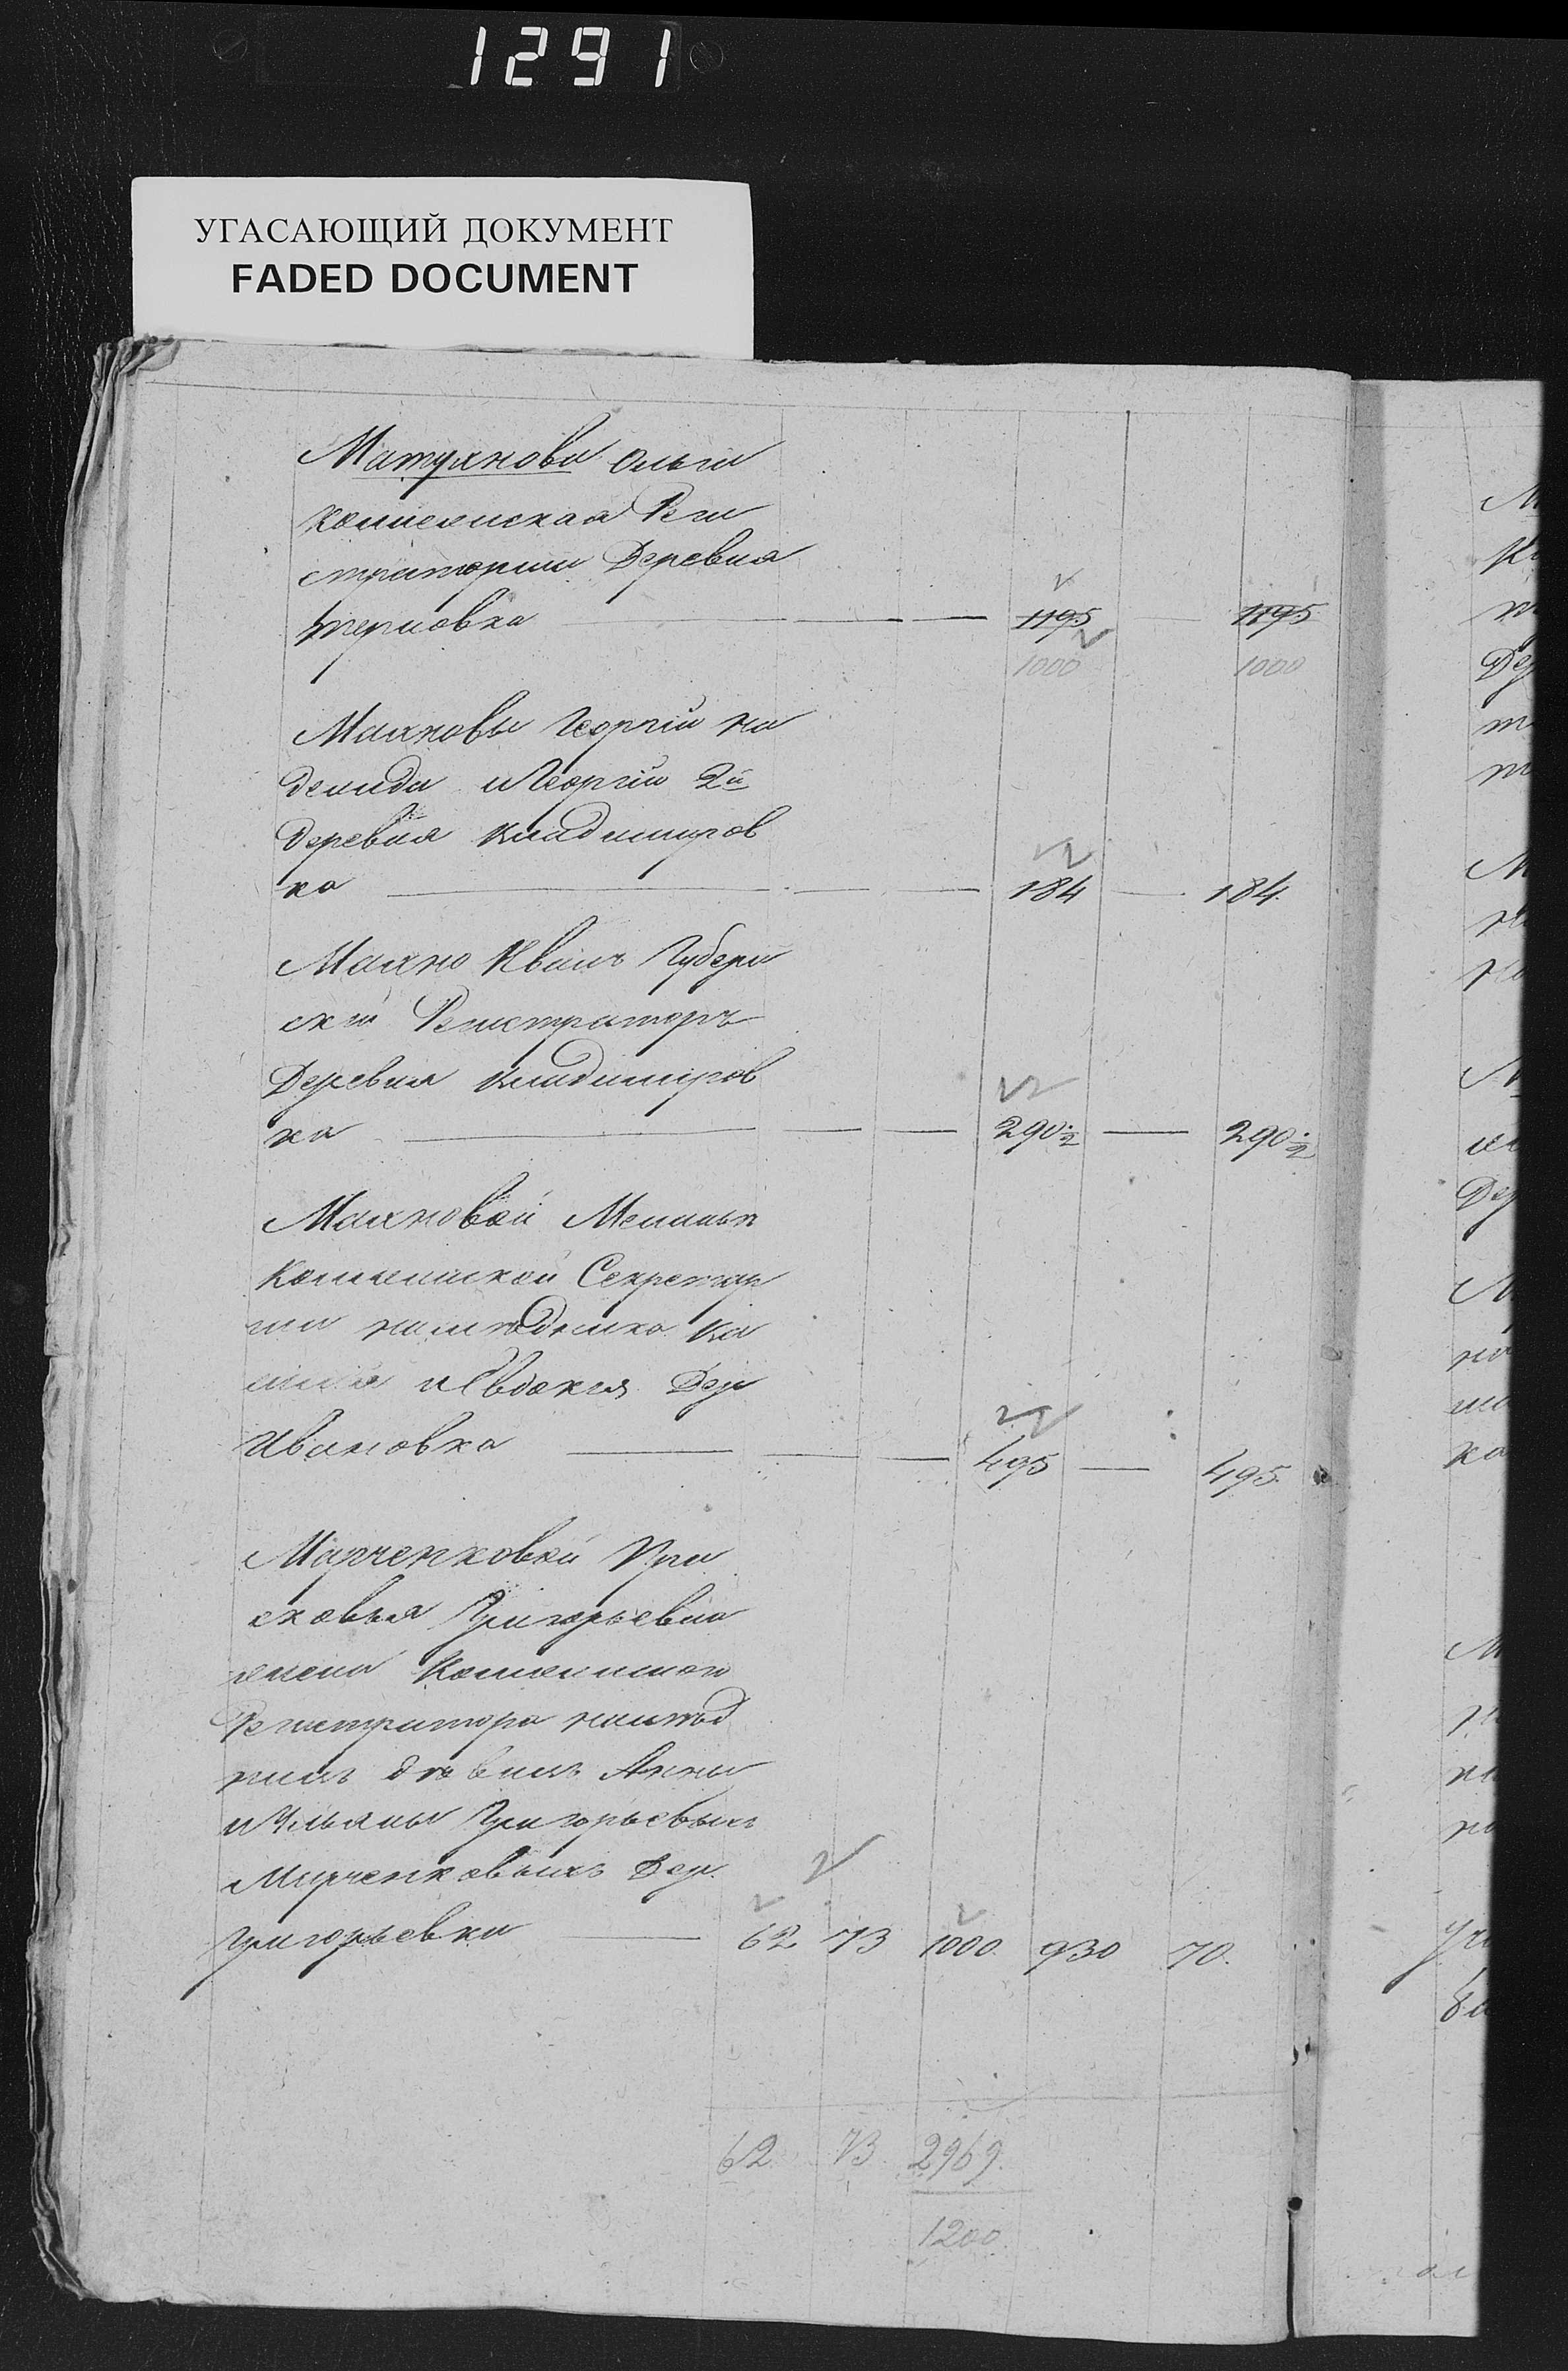 1291
УГАСАЮЩИЙ ДОКУМЕНТ
FADED DOCUMENT
Матуяновы Ольги
Коллежская Реги
страторши Деревня
терновка — — — 1195 — 1195
1000 1000
Махновы Георгій На
демида и Георгій 2й
деревня Владимиров
ка — — — 184 — 184.
Махно Иванъ Губерн
скій Регистраторъ
Деревня Владимиров
ка — — — 290½ — 290½
Махновой Меланьи
Коллежской Секретар
ши наслѣдника
и Евдокія Дер
Ивановка — — — 495 — 495.
Марченковой Пра
сковья Григорьевна
жена Коллежскаго
Регистратора наслѣд
ницъ дѣвицъ Анны
и Ульяны Григорьевыхъ
Марченковыхъ Дер.
Григорьевка — 62 73 1000. 930 70.
62. 73. 2969.
1200.